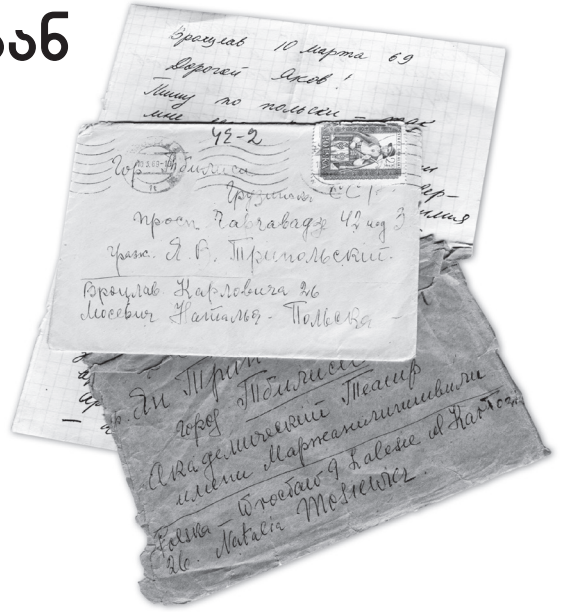 ან
Вроцлав 10 марта 69
Дорогой Яков!
Пишу по польски – так
мне
42-2
Гор. Тбилиси
Грузинская ССР
просп Чавчавадзе 42 под 3
граж. Я. Р. Трипольский.
Вроцлав. Карловича 26
Мосевич Наталья - Польска -
Ян Трип
город Тбилиси
Академический Театр
имени Марджанишвили
Polska – Wrocław 9 Zalesie ul
26. Natalia Mosiewicz.